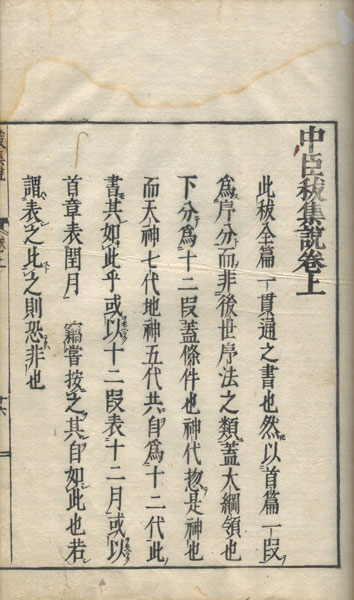 中臣祓集說卷上
此祓全篇一貫通之書也然以首篇一段
爲序分而非後世序法之類蓋大綱領也
下分爲十二段蓋條件也神代惣是神也
而天神七代地神五代共自爲十二代此
書其如此乎或以十二段表十二月或以
首章表閏月 竊嘗按之其自如此也若
謂表之此之則恐非也